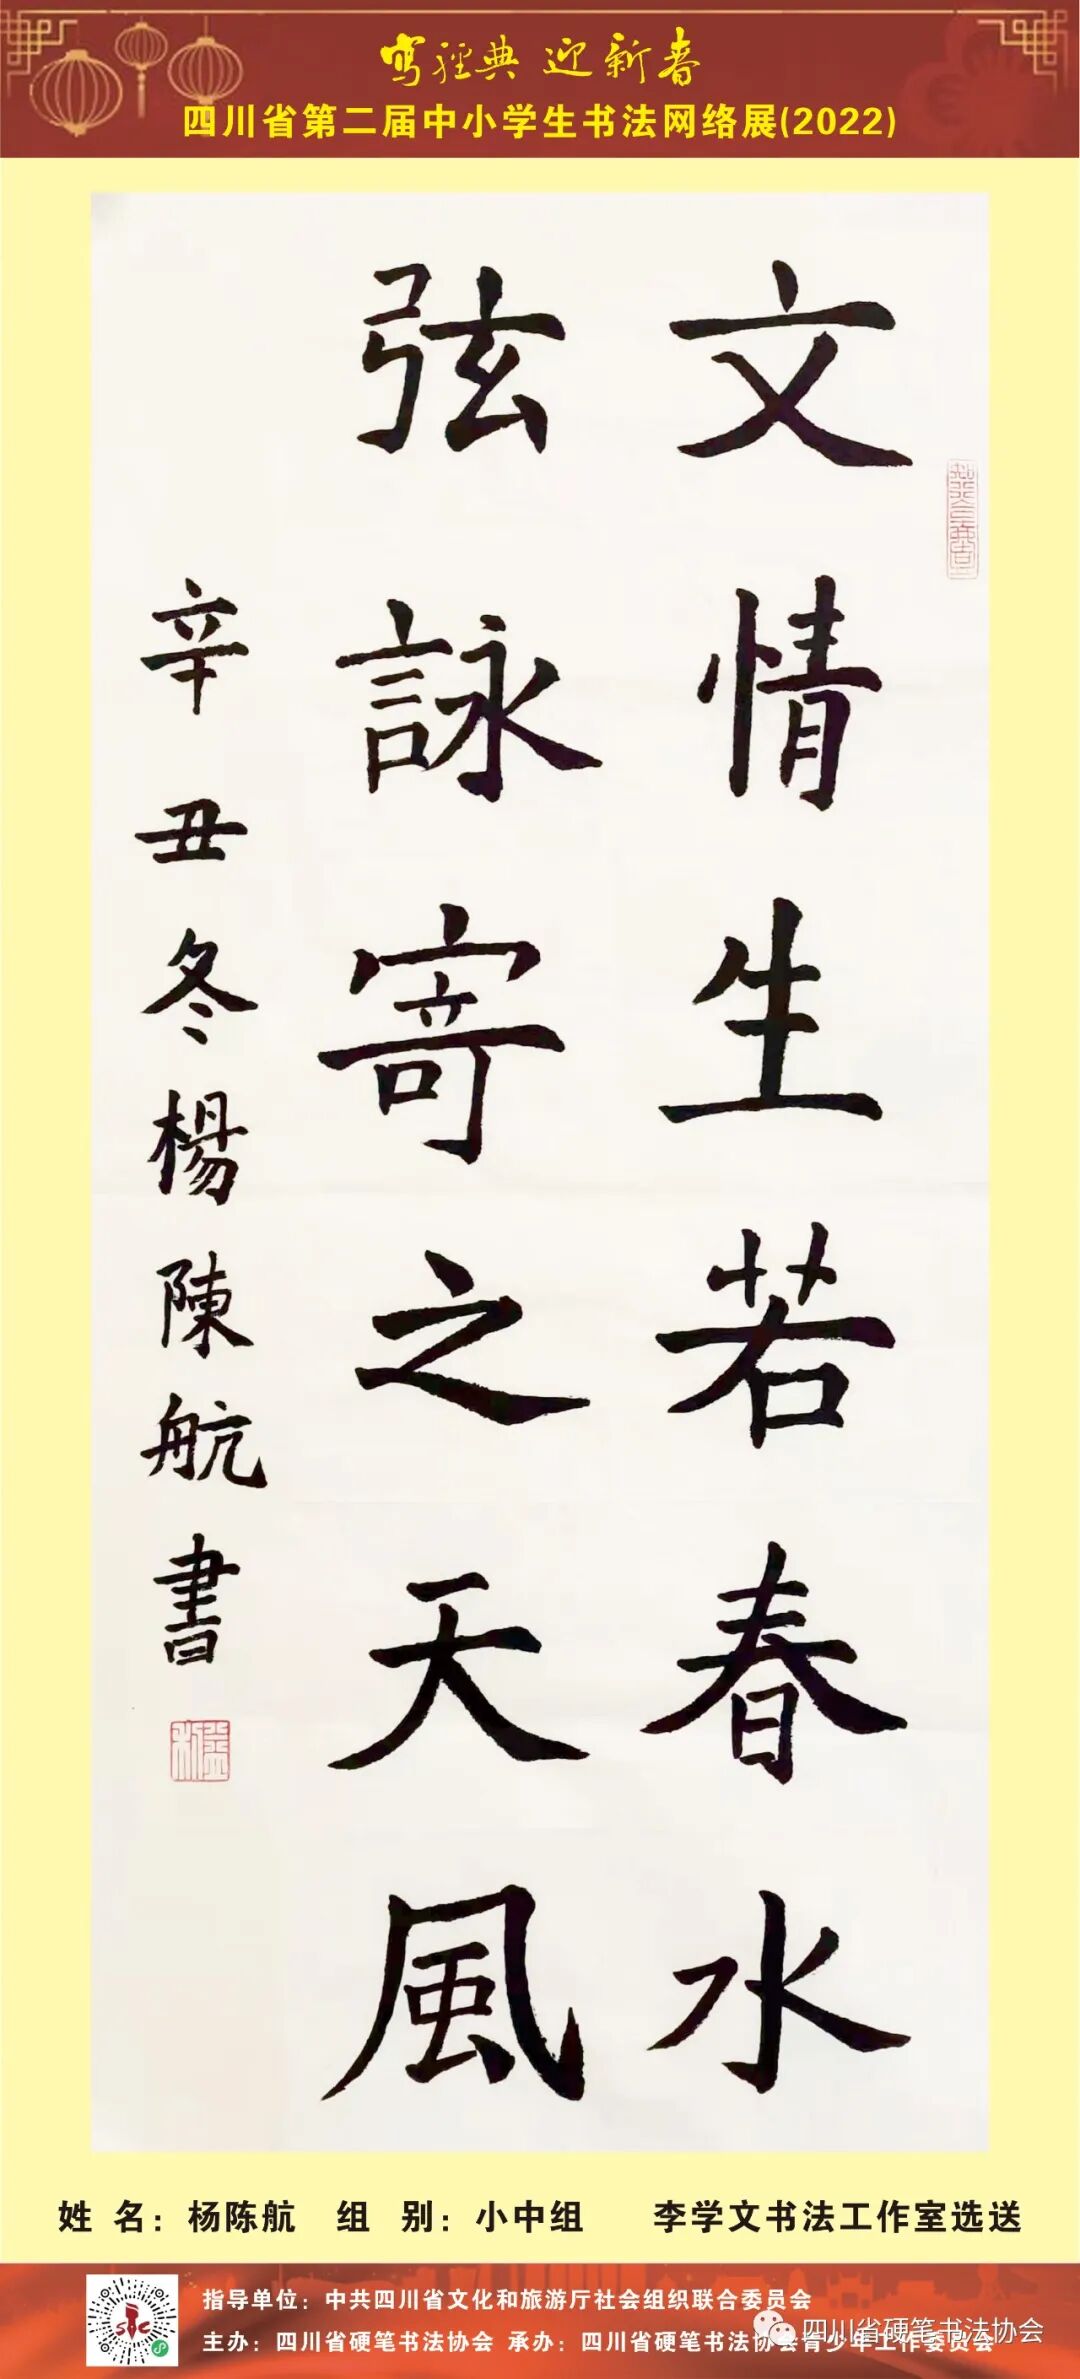 写经典 迎新春
四川省第二届中小学生书法网络展(2022)
文情生若春水
弦詠寄之天風
辛丑冬楊陳航書
姓 名：杨陈航 组 别：小中组 李学文书法工作室选送
指导单位：中共四川省文化和旅游厅社会组织联合委员会
主办：四川省硬笔书法协会 承办：四川省硬笔书法协会青少年工作委员会
四川省硬笔书法协会